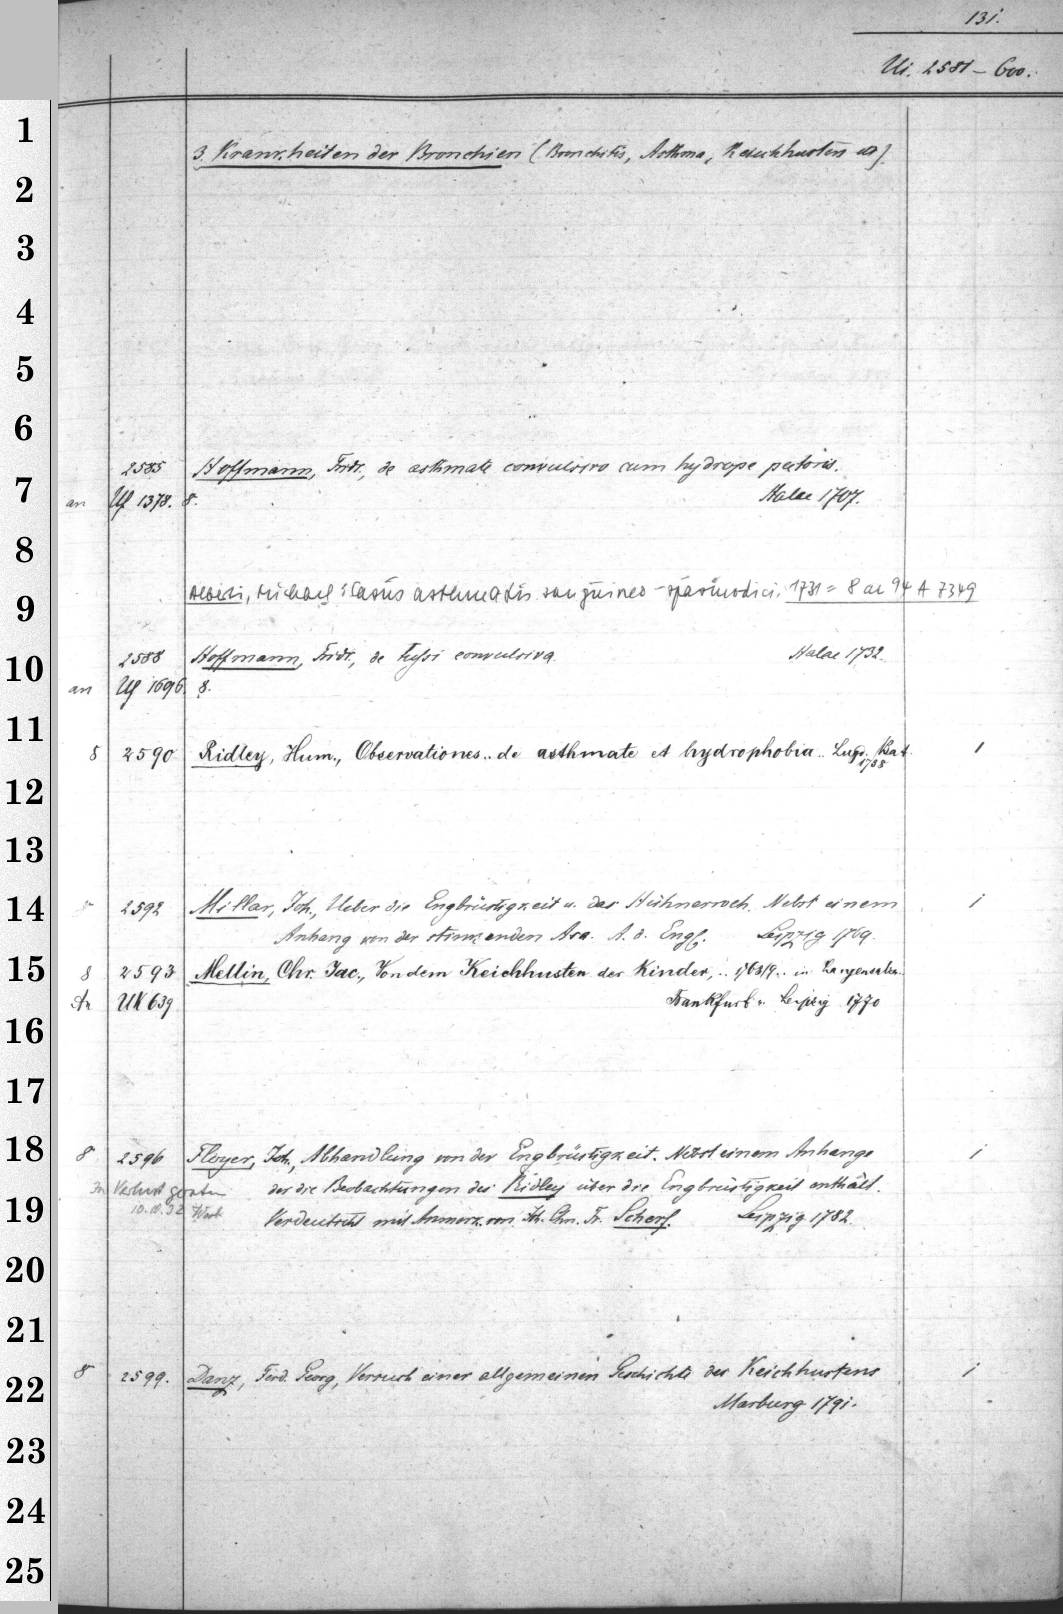 131.
Ui. 2581 - 600.
1
3. Krankheiten der Bronchien (Bronchitis, Asthma, Keuchhusten etc).
2
3
4
5
6
2585 Hoffmann, Fridr., de asthmate convulsivo cum hydrope pectoris.
7
an Uf 1378. 8. Halae 1707.
8
Alberti, Michael: Casus asthmatis sanguineo-spasmodici, 1731 = 8 an 94 A 7349
9
2588 Hoffmann, Fridr., de Tussi convulsiva Halae 1732.
10
an Uf 1696. 8.
11
8 2590 Ridley, Hum., Observationes.. de asthmate et hydrophobia.. Lugd. Bat. 1
1738
12
13
14
8 2592 Millar, Joh., Ueber die Engbrüstigkeit u. das Hühnerweh. Nebst einem 1
Anhang von der stinkenden Asa. A. d. Engl. Leipzig 1769.
15
8 2593 Mellin, Chr. Jac., Von dem Keichhusten der Kinder, .. 1768/9.. in Langensalza..
An UK 639 Frankfurt u. Leipzig 1770
16
17
18
8 2596 Floyer, Joh., Abhandlung von der Engbrüstigkeit. Nebst einem Anhange 1
In Verlust geraten der die Beobachtungen des Ridley über die Engbrüstigkeit enthält.
19
10.10.32 Verdeutscht mit Anmerk. von Joh. Chn. Fr. Scherf. Leipzig 1782.
20
21
8 2599. Danz, Ferd. Georg, Versuch einer allgemeinen Geschichte des Keichhustens 1
22
Marburg 1791.
23
24
25